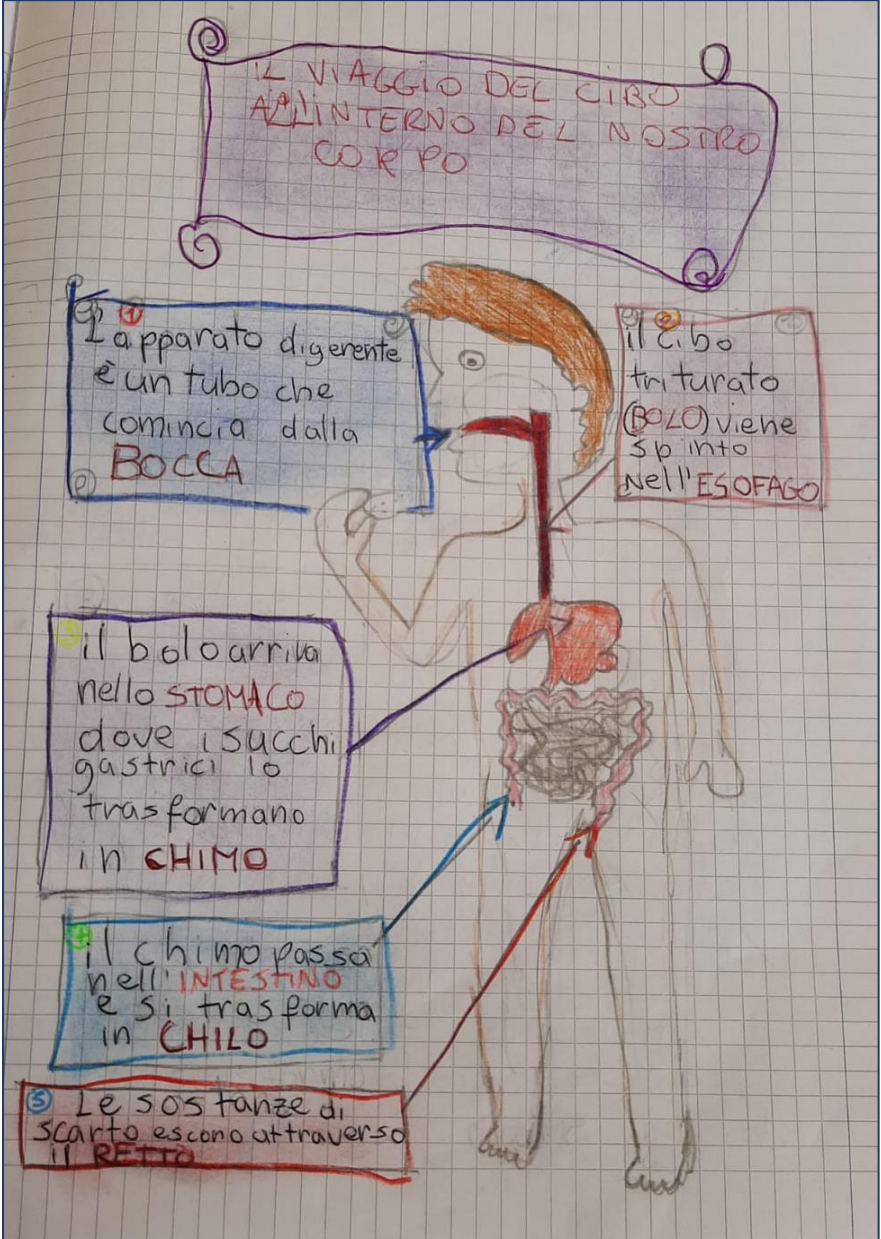 IL VIAGGIO DEL CIBO
ALL'INTERNO DEL NOSTRO
CORPO
1
L'apparato digerente
è un tubo che
comincia dalla
BOCCA
2
il cibo
triturato
(BOLO) viene
spinto
nell'ESOFAGO
3
il bolo arriva
nello STOMACO
dove i succhi
gastrici lo
trasformano
in CHIMO
4
il chimo passa
nell'INTESTINO
e si trasforma
in CHILO
5 Le sostanze di
scarto escono attraverso
il RETTO